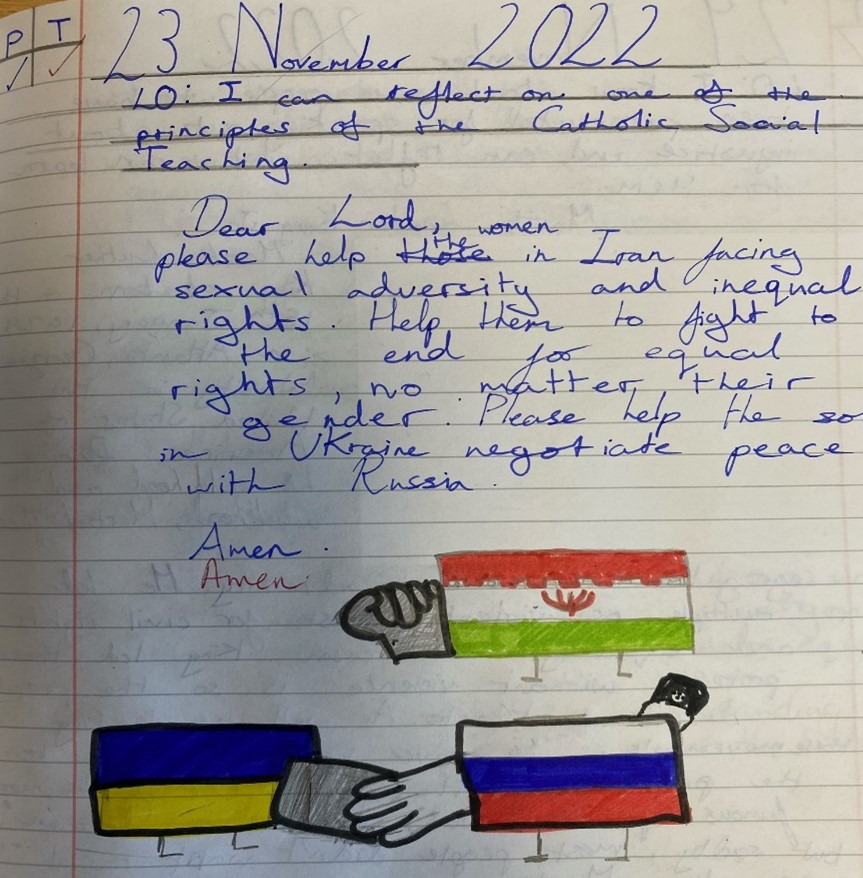 P T
23 November 2022
LO: I can reflect on one of the
principles of the Catholic Social
Teaching.
Dear Lord,
please help the women in Iran facing
sexual adversity and inequal
rights. Help them to fight to
the end for equal
rights, no matter their
gender. Please help the so
in Ukraine negotiate peace
with Russia.
Amen.
Amen.